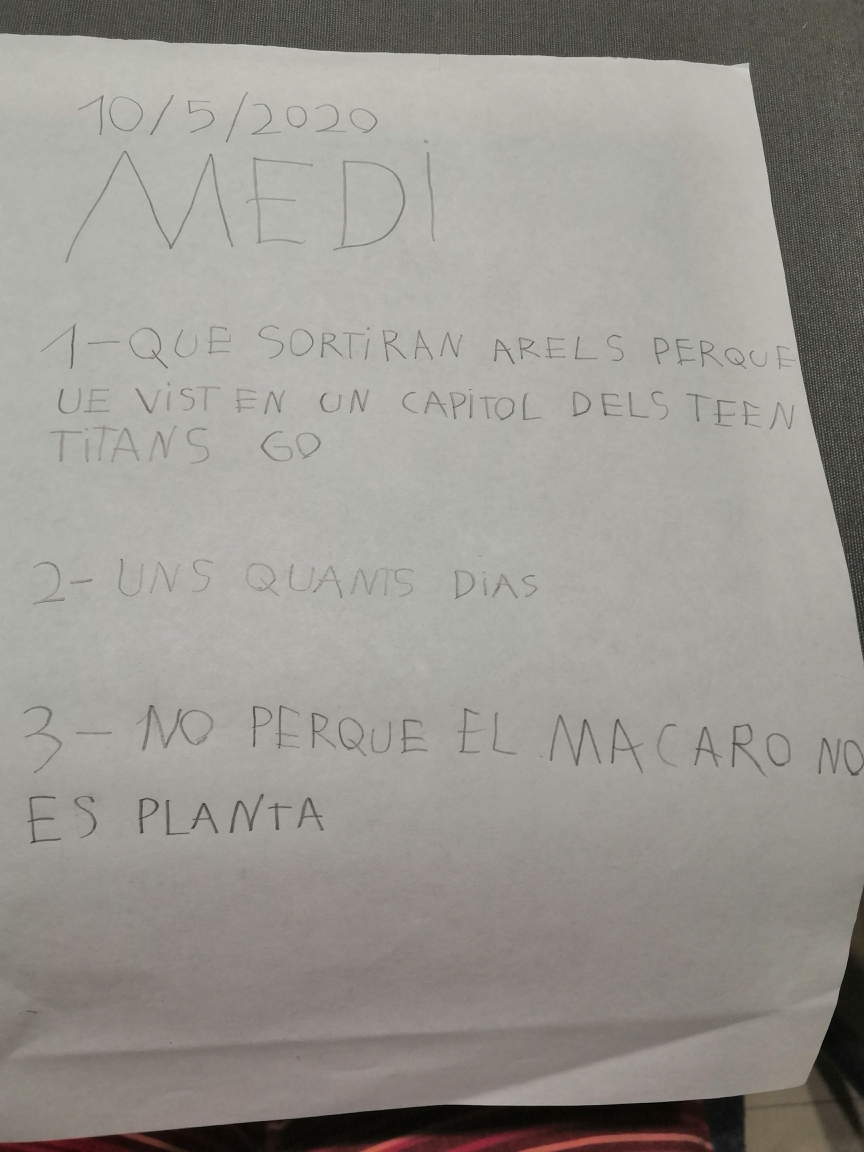 10/5/2020
MEDI
1-QUE SORTIRAN ARELS PERQUE
UE VIST EN UN CAPITOL DELS TEEN
TITANS GO
2- UNS QUANTS DIAS
3- NO PERQUE EL MACARO NO
ES PLANTA